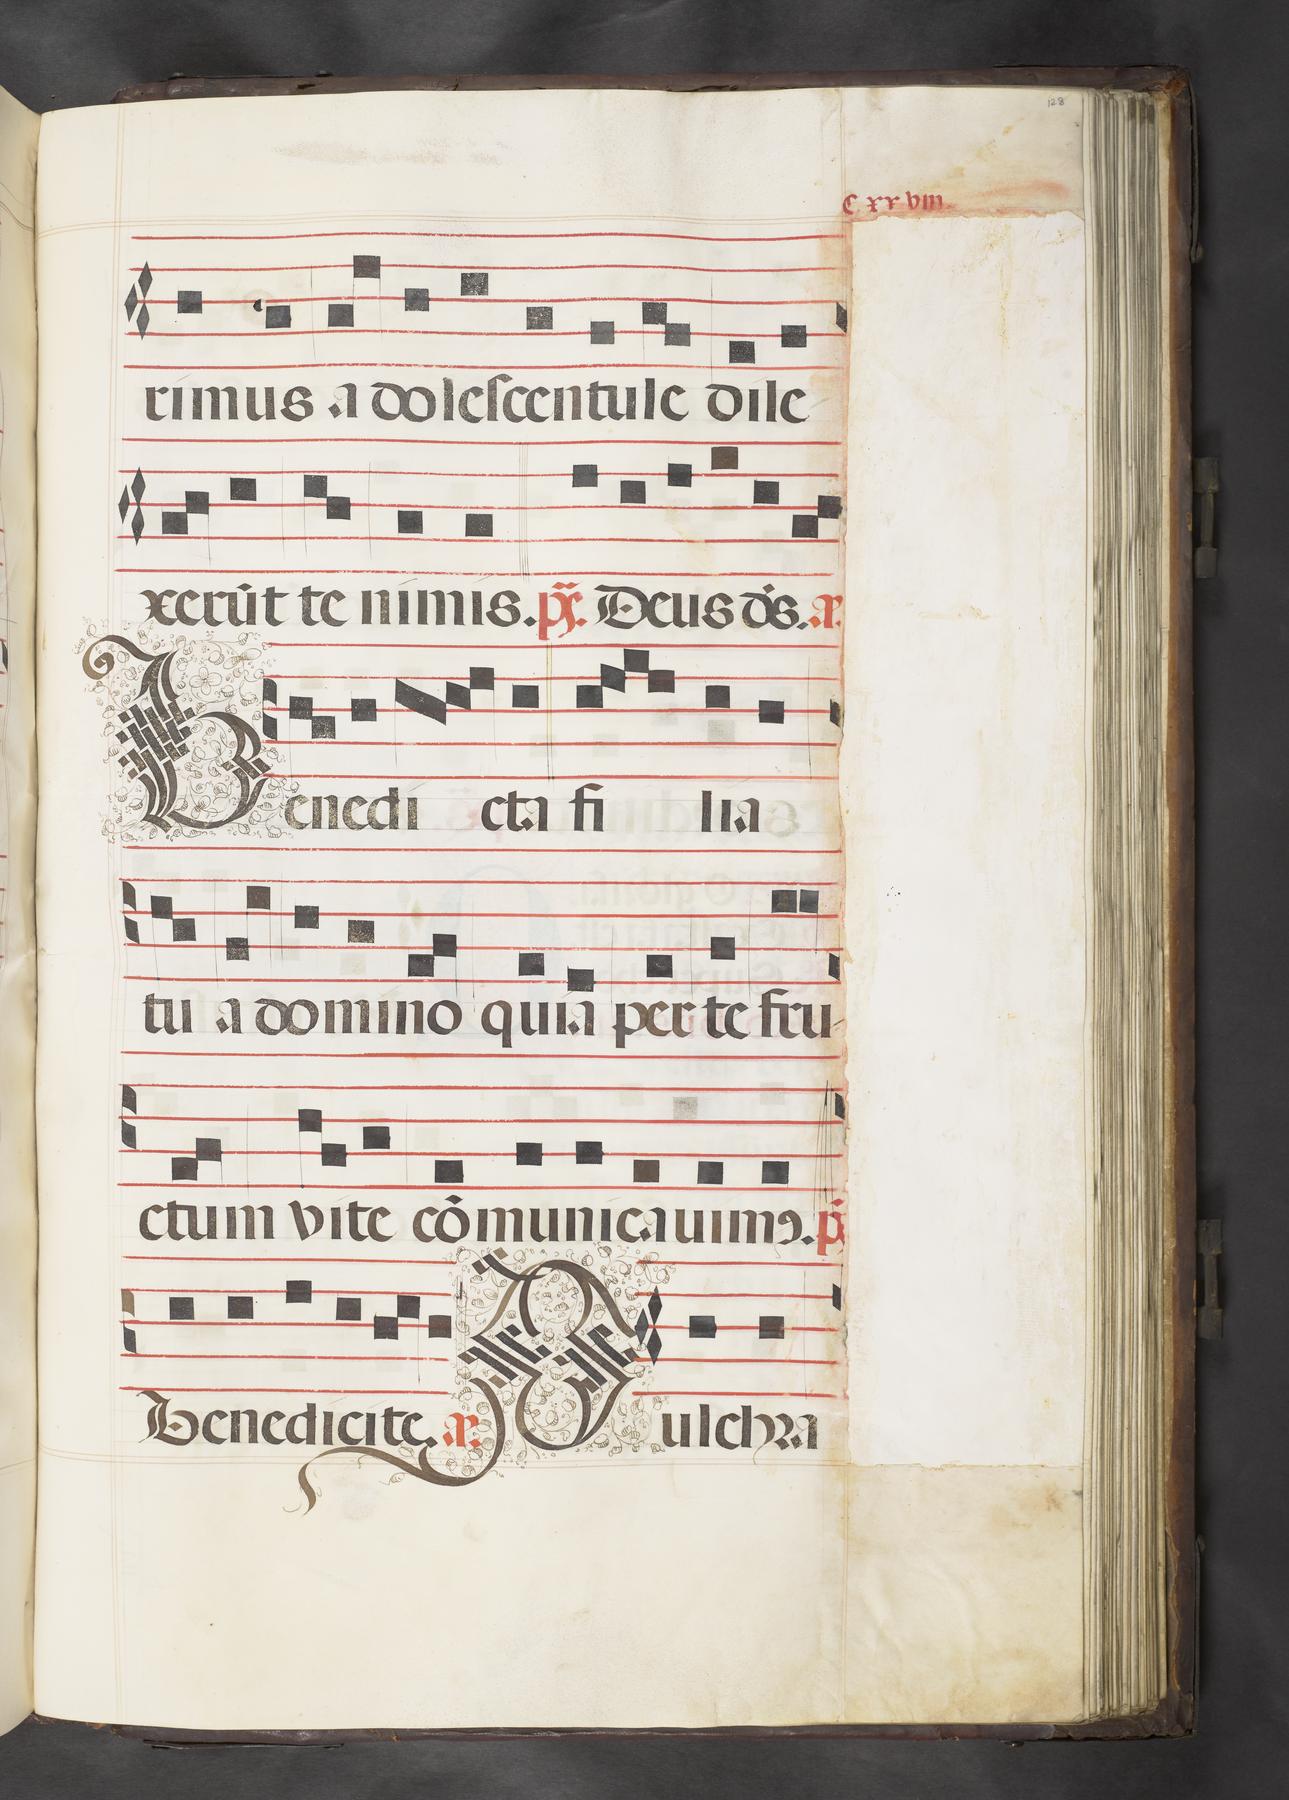 128
C xx viii
rimus adolescentule dile
xerūt te nimis. p̄s. Deus ds. a.
Benedi cta fi lia
tu a domino quia per te fru
ctum vite cōmunicauimꝰ. p̄s
Benedicite. a. Pulchra